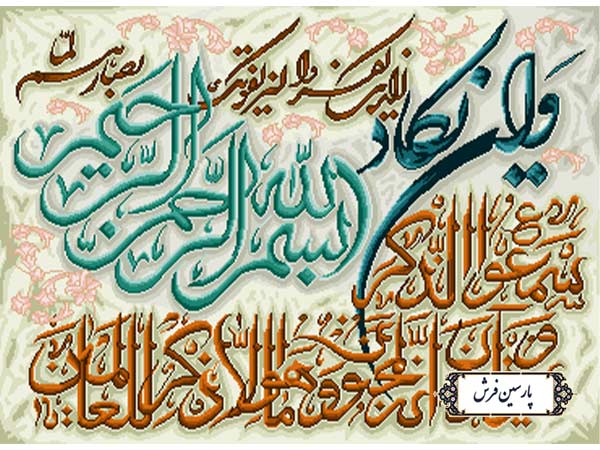 بسم الله الرحمن الرحیم
وان یکاد
الذین کفروا لیزلقونک
بابصارهم لما
سمعوا الذکر
ویقولون انه لمجنون وما هو الا ذکر للعالمین
پارسین فرش